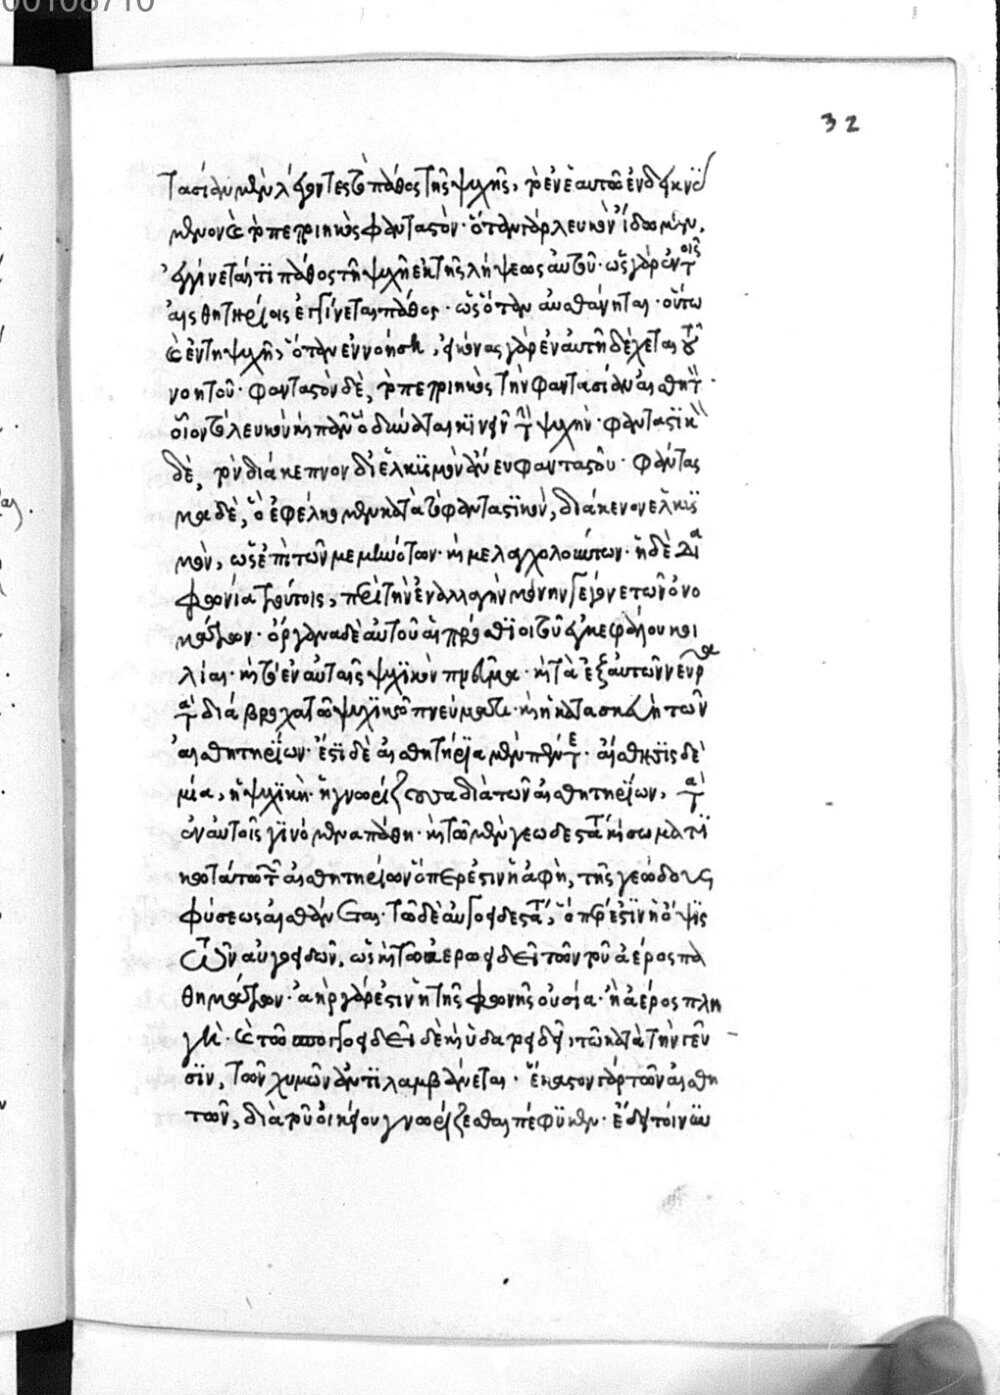 32
τασίαν μὲν λέγοντες τὸ πάθος τῆς ψυχῆς, τὸ ἐν ἑαυτῶ ἐνδεικνύ
μενον καὶ τὸ πεποιηκὸς φανταστόν· ὅταν γὰρ λευκὸν ἴδωμεν,
ἐγγίνεταί τι πάθος τῆ ψυχῆ ἐκ τῆς λήψεως αὐτοῦ· ὡς γὰρ ἐν τοῖς
αἰσθητηρίοις ἐγγίνεται πάθος· ὡς ὅταν αἰσθάνηται· οὕτω
καὶ ἐν τῆ ψυχῆ, ὅταν ἐννοήση, εἰκόνας γὰρ ἐν αὐτῆ δέχεται τοῦ
νοητοῦ· φανταστὸν δὲ, τὸ πεποιηκὸς τὴν φαντασίαν αἰσθητ·
οἷον τὸ λευκὸν καὶ πᾶν ὃ δύναται κινεῖν τ ψυχήν· φανταστικ
δὲ, τὴν διάκενον διελκυσμὸν ἄνευ φανταστοῦ· φάντασ
μα δὲ, ὃ ἐφελκόμεθα κατὰ τὸ φανταστικὸν, διάκενον ἑλκυσ
μὸν, ὡς ἐπὶ τῶν μεμηνότων· καὶ μελαγχολούντων· ἡ δὲ δια
φωνία τούτοις, περὶ τὴν ἐναλλαγὴν μόνην γέγονε τῶν ὀνο
μάτων· ὄργανα δὲ αὐτοῦ αἱ πρόσθιοι τοῦ ἐγκεφάλου κοι
λίαι· καὶ τὸ ἐν αὐταῖς ψυχικὸν πνεῦμα· καὶ τὰ ἐξ αὐτῶν νεῦρα
τὰ διάβροχα τῶ ψυχικῶ πνεύματι· καὶ ἡ κατασκευὴ τῶν
αἰσθητηρίων· ἔστι δὲ αἰσθητήρια μὲν πέντε· αἴσθησις δὲ
μία, ἡ ψυχικὴ· ἡ γνωρίζουσα διὰ τῶν αἰσθητηρίων, τὰ
ἐν αὐτοῖς γινόμενα πάθη· καὶ τῶ μὲν γεωδεστάτ καὶ σωματι
κωτάτω τ αἰσθητηρίων ὅπερ ἐστὶν ἡ ἁφὴ, τῆς γεώδους
φύσεως αἰσθάνεται· τῶ δὲ αὐγοειδεστάτ, ὅπερ ἐστὶν ἡ ὄψις
τῶν αὐγοειδῶν, ὡς καὶ τῶ ἀεροειδεῖ τῶν τοῦ ἀέρος πα
θημάτων· ἀὴρ γὰρ ἐστὶν ἡ τῆς φωνῆς οὐσία· ἢ ἀέρος πλη
γὴ· καὶ τῶ σπογγοειδεῖ δὲ καὶ ὑδαροειδεῖ, τῶ κατὰ τὴν γεῦ
σιν, τῶν χυμῶν ἀντιλαμβάνεται· ἕκαστον γὰρ τῶν αἰσθη
τῶν, διὰ τοῦ οἰκείου γνωρίζεσθαι πέφυκεν· ἔδει τοίνυν